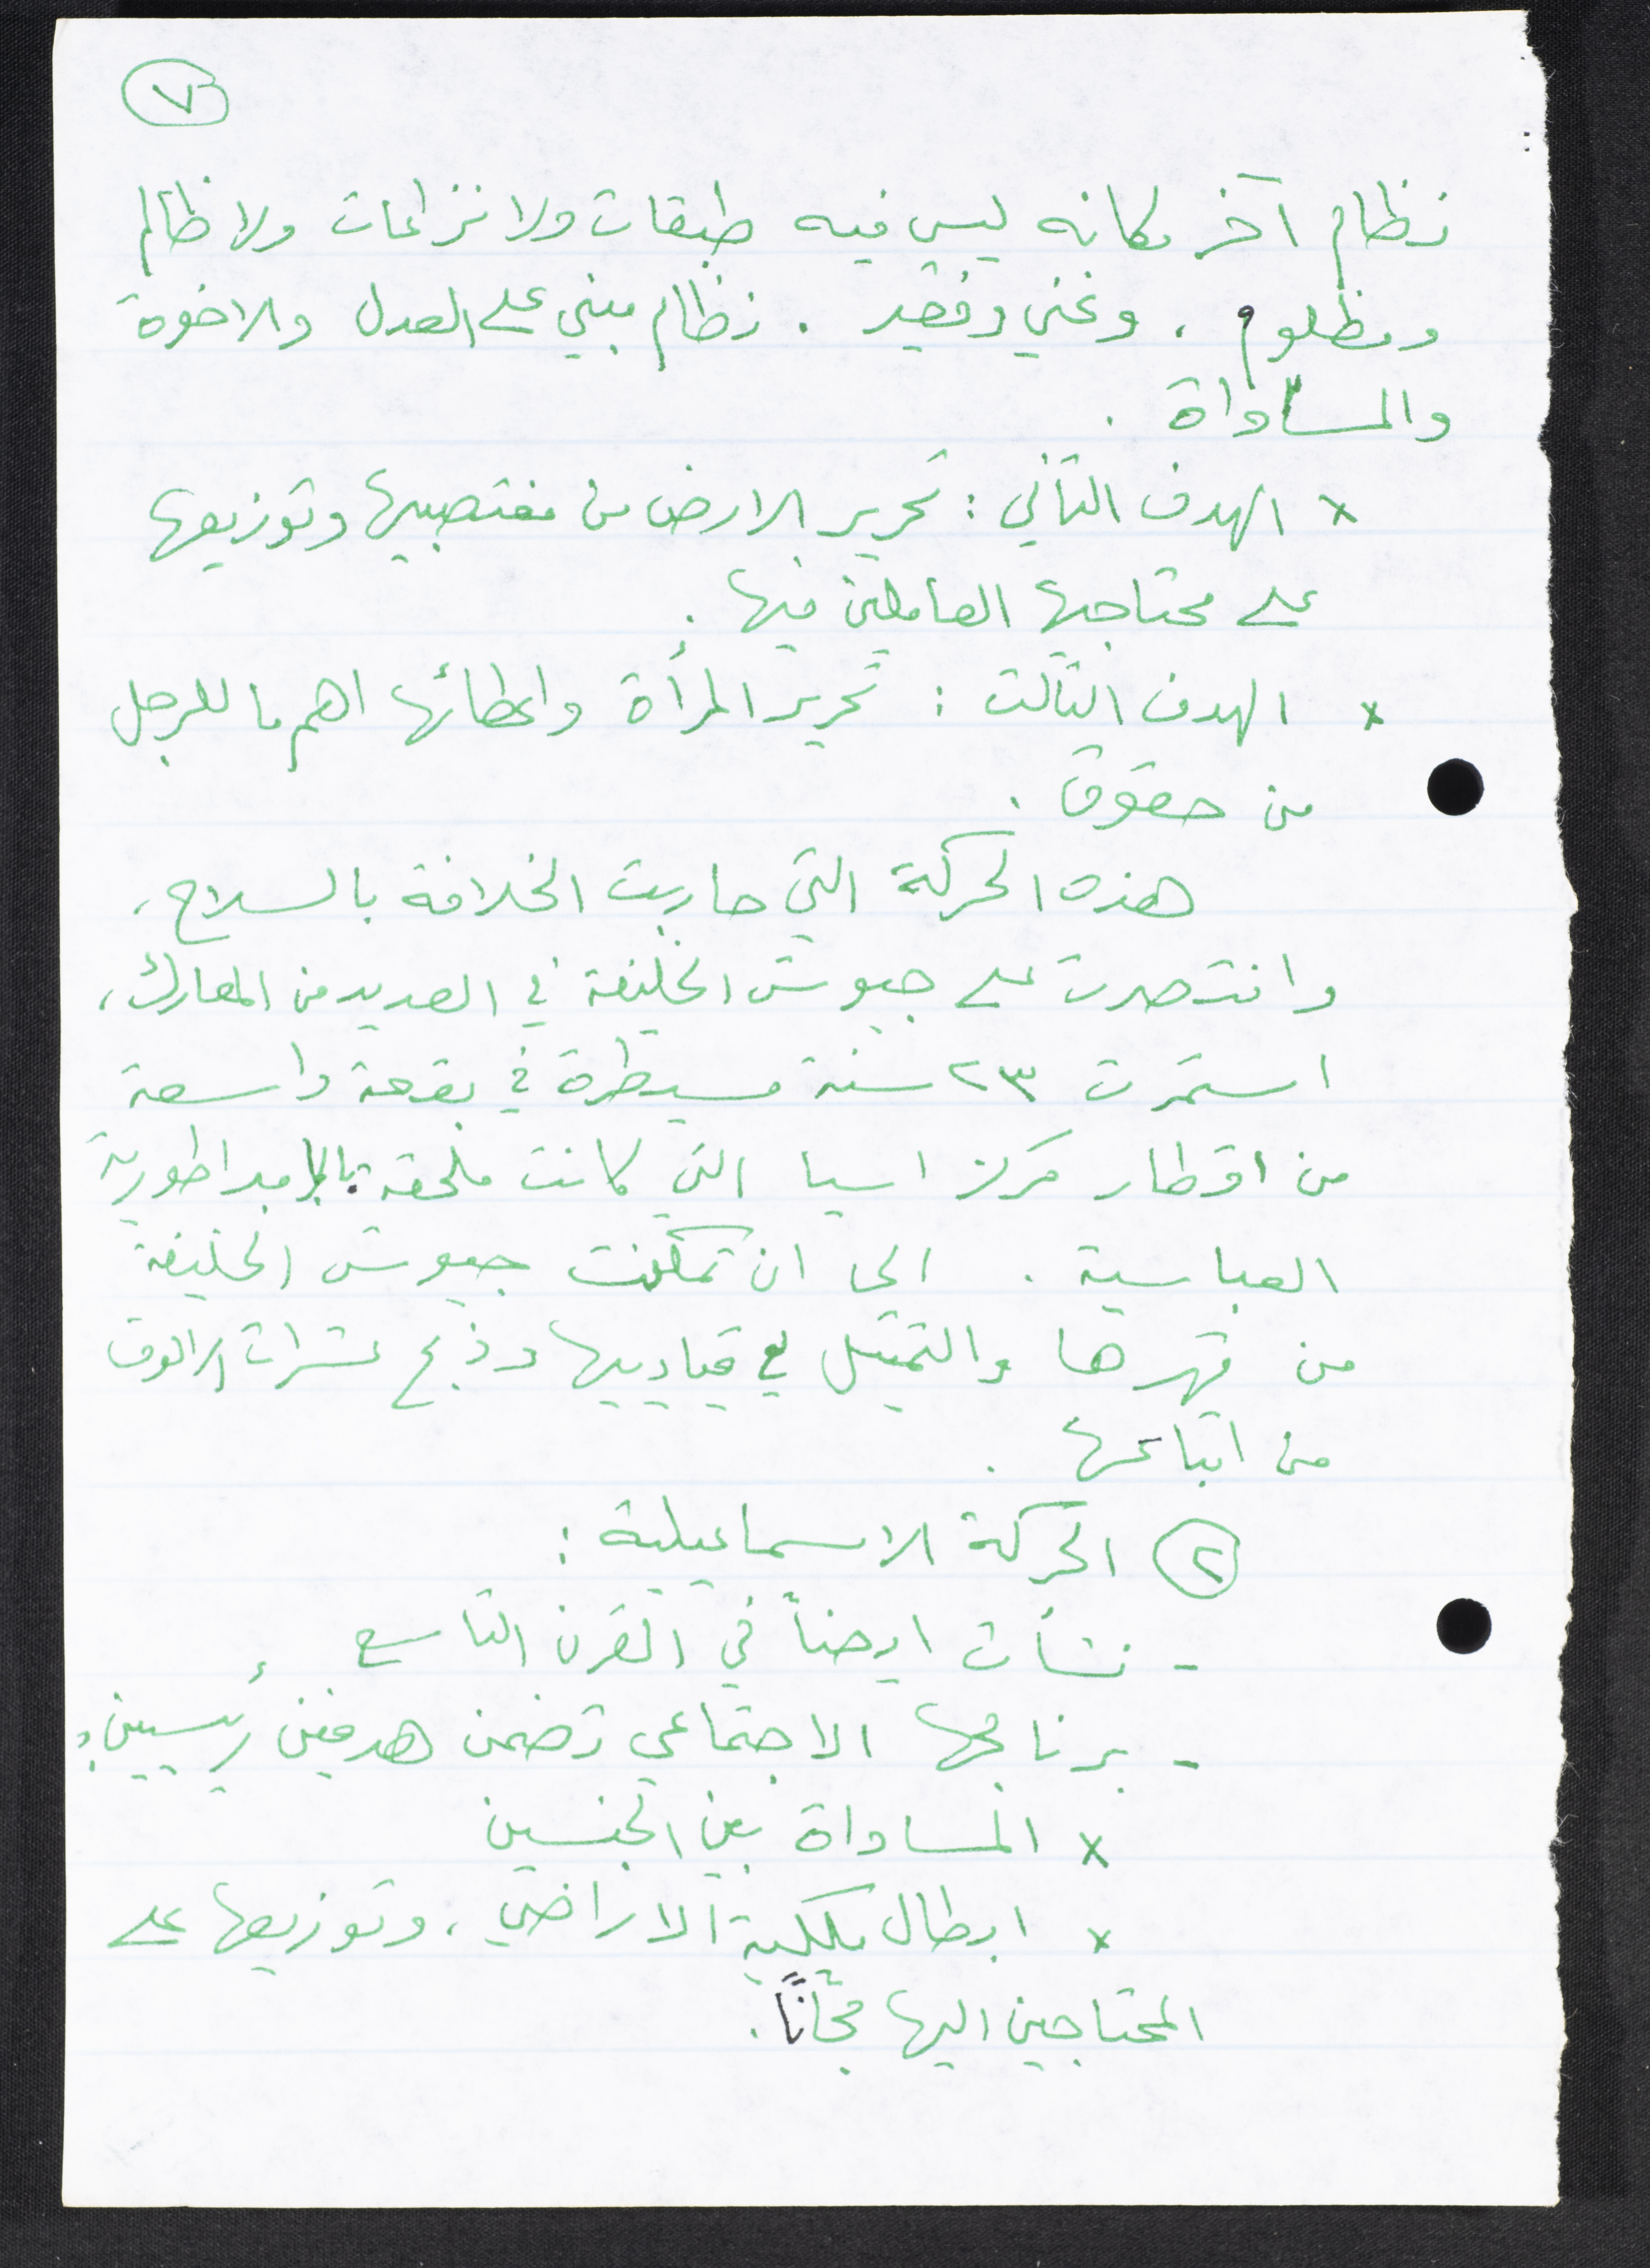 ٧
نظام آخر مكانه ليس فيه طبقات ولا نزاعات ولا ظالم
ومظلوم ، وغني وفقير . نظام مبني على العدل والاخوة
والمساواة .
x الهدف الثاني : تحرير الارض من مغتصبيها وتوزيعها
على محتاجيها العاملين فيها .
x الهدف الثالث : تحرير المرأة واعطائها اهم ما للرجل
من حقوق .
هذه الحركة التي حاربت الخلافة بالسلاح ،
وانتصرت على جيوش الخليفة في العديد من المعارك ،
استمرت ٢٣ سنة مسيطرة في بقعة واسعة
من اقطار مركز اسيا التي كانت ملحقة بالامبراطورية
العباسية . الى ان تمكنت جيوش الخليفة
من قهرها والتمثيل في قيادييها وذبح عشرات الالوف
من اتباعها .
٢ الحركة الاسماعيلية :
- نشأت ايضاً في القرن التاسع
- برنامجها الاجتماعي تضمن هدفين رئيسيين :
x المساواة بين الجنسين
x ابطال ملكية الاراضي ، وتوزيعها على
المحتاجين اليها مجّاناً .